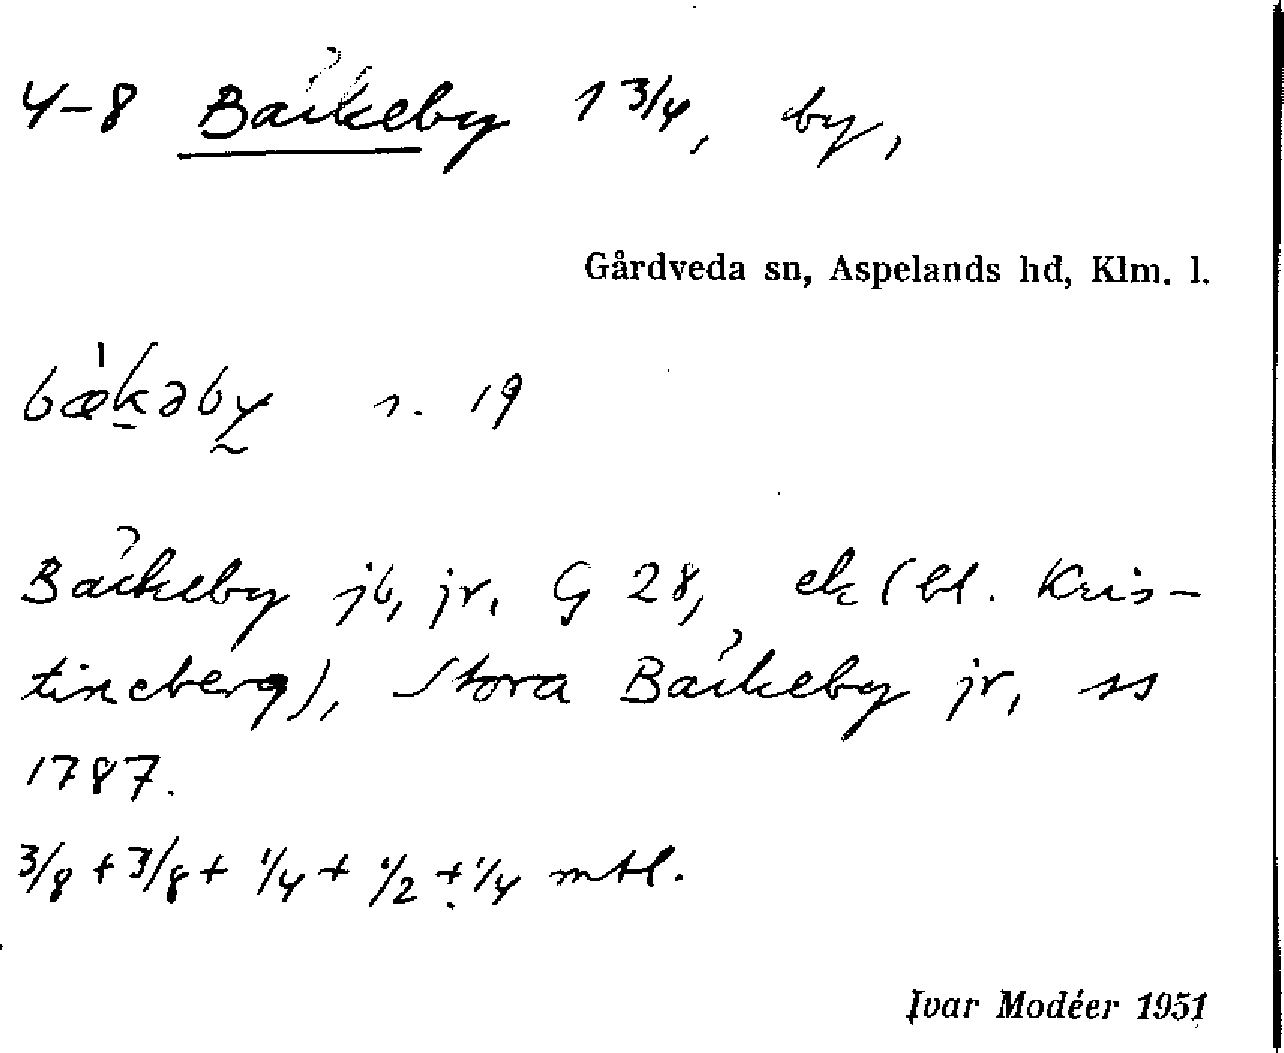 4-8 Bäckeby 1 3/4, by,
Gårdveda sn, Aspelands hd, Klm. l.
bækəby s. 19
Bäckeby jb, jr, G 28, ek (bl. Kris-
tineberg), Stora Bäckeby jr, ss
1787.
3/8 + 3/8 + 1/4 + 1/2 + 1/4 mtl.
Ivar Modéer 1951